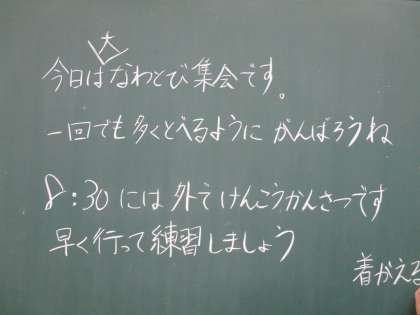 今日は大なわとび集会です。
一回でも多くとべるようにがんばろうね
8:30には外でけんこうかんさつです
早く行って練習しましょう
着がえる